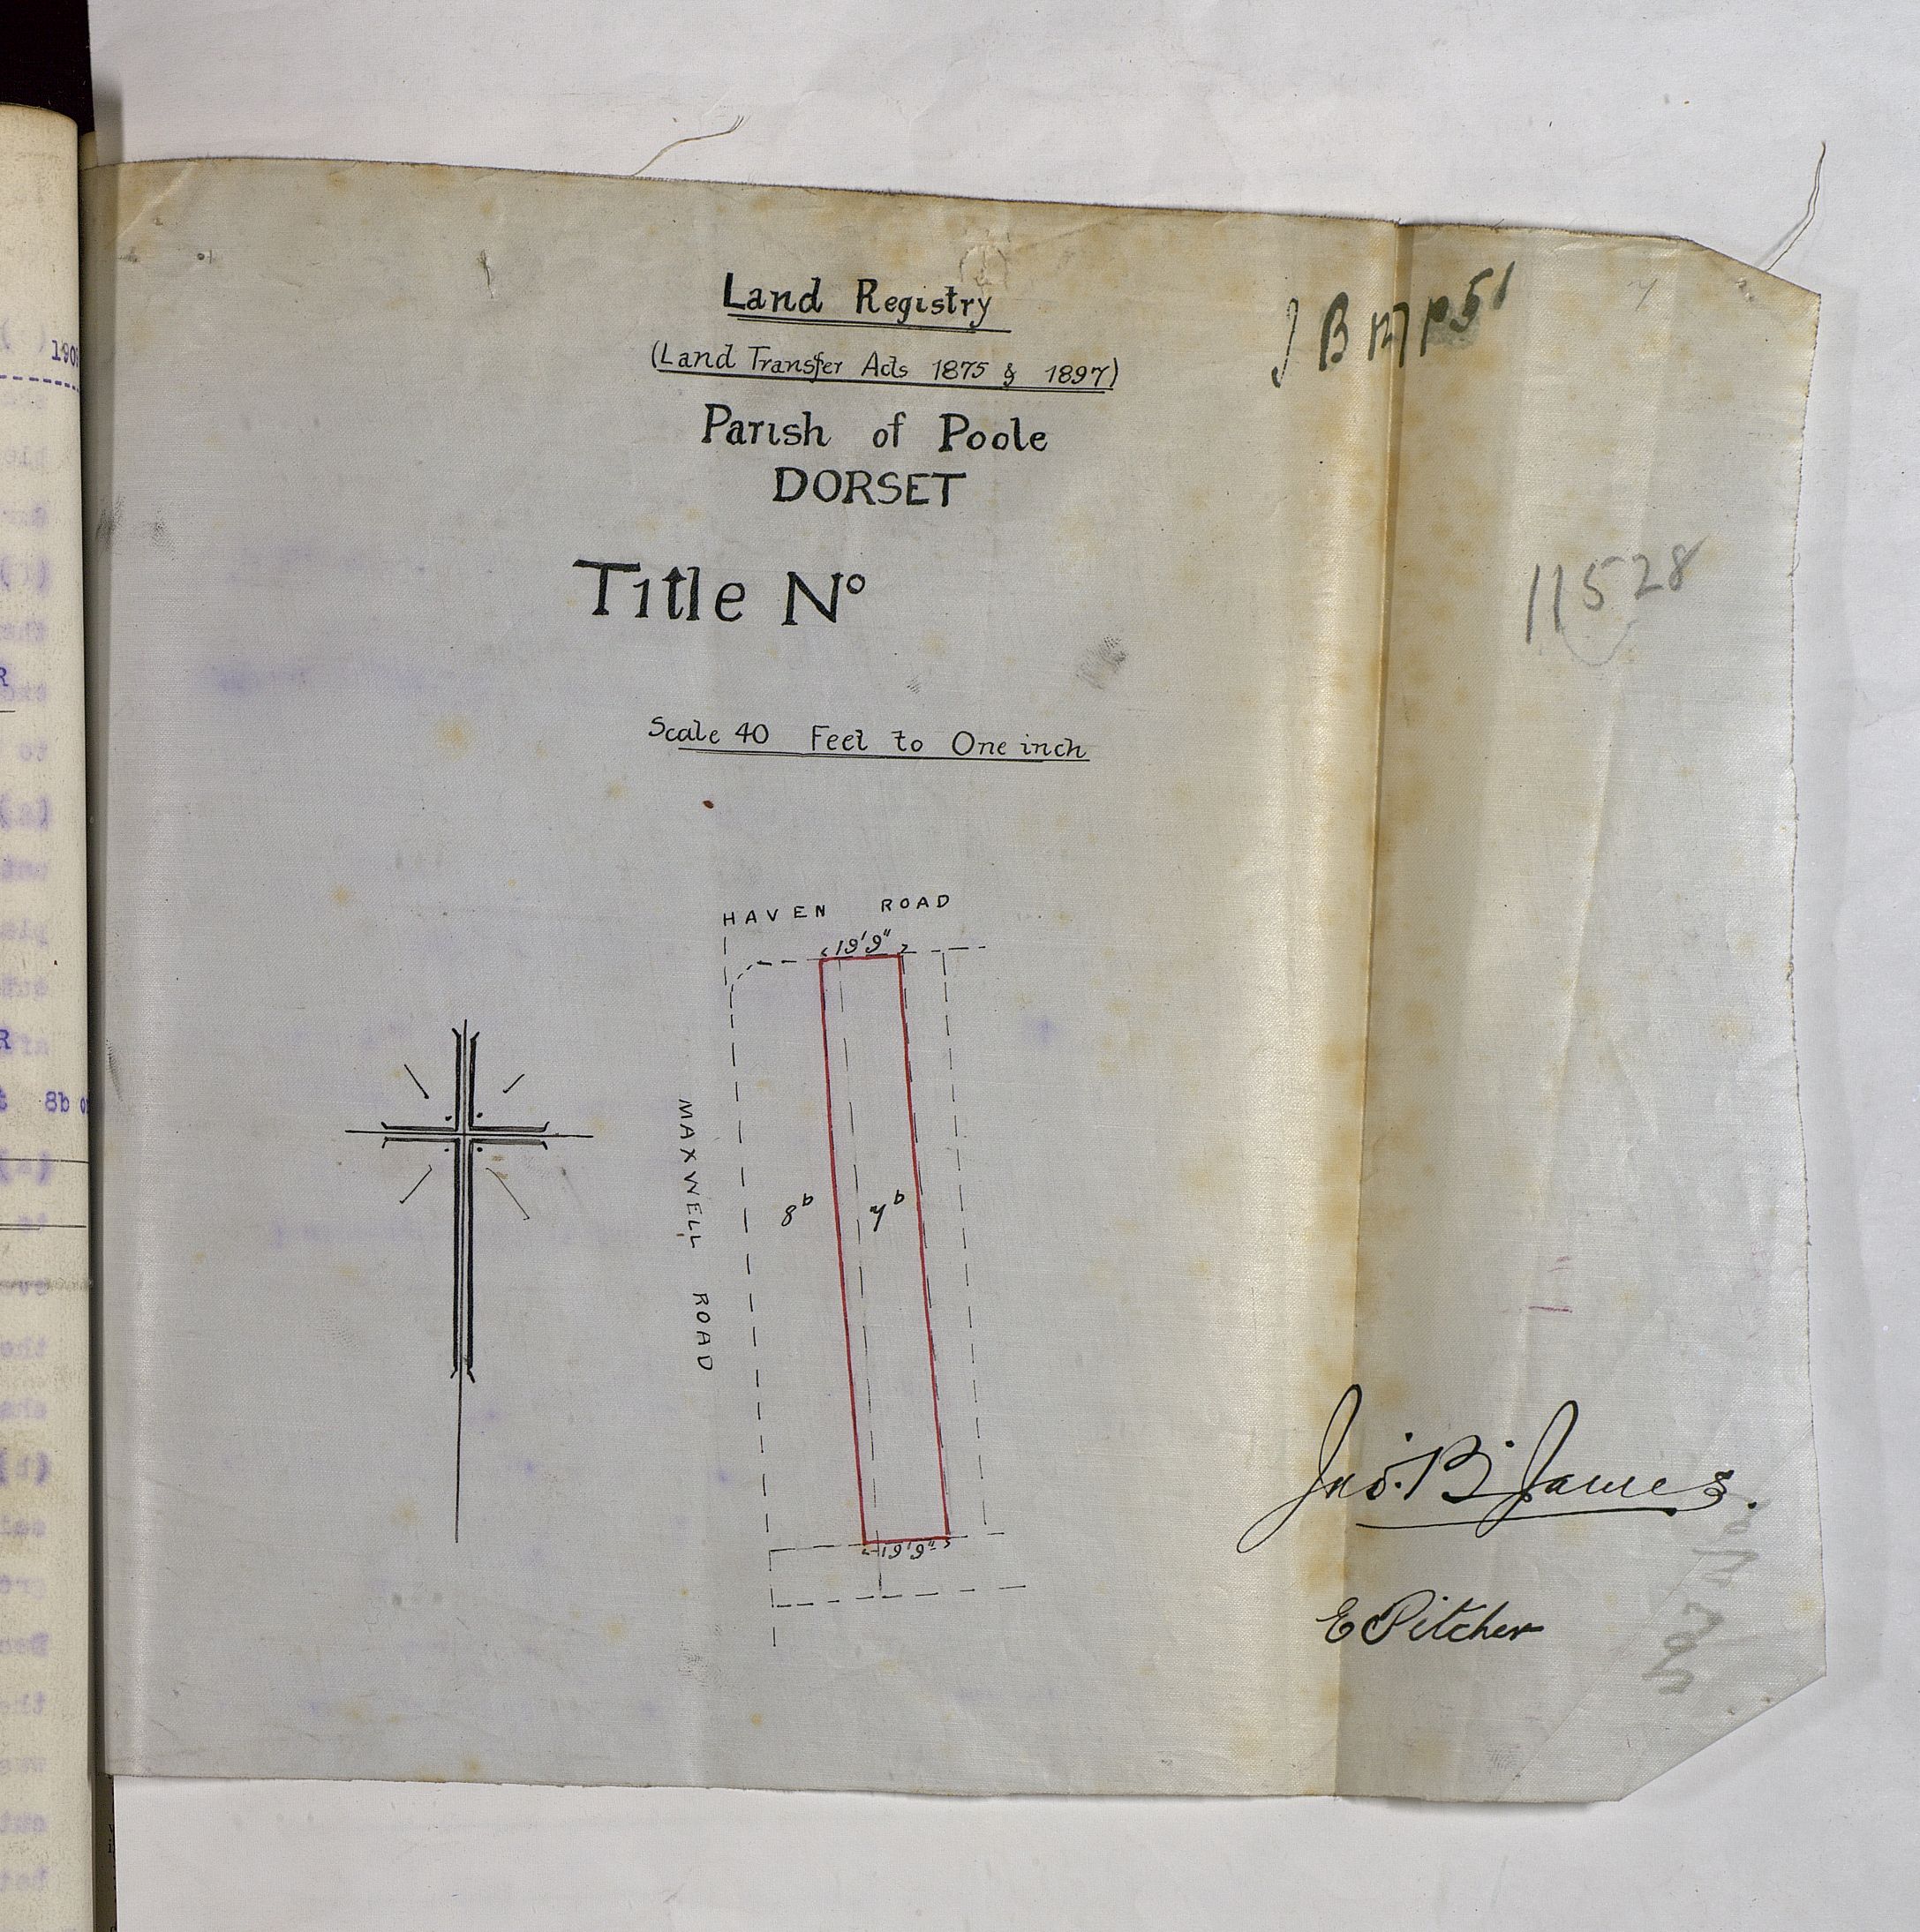 Land Registry
(Land Transfer Acts 1875 & 1897)
Parish of Poole
DORSET
Title Nº
Scale 40 Feet to One inch
11528
HAVEN ROAD
19' 9"
MAXWELL ROAD
8b
7b
19' 9"
Jno. B. James.
E Pitcher
190
R
R
8b